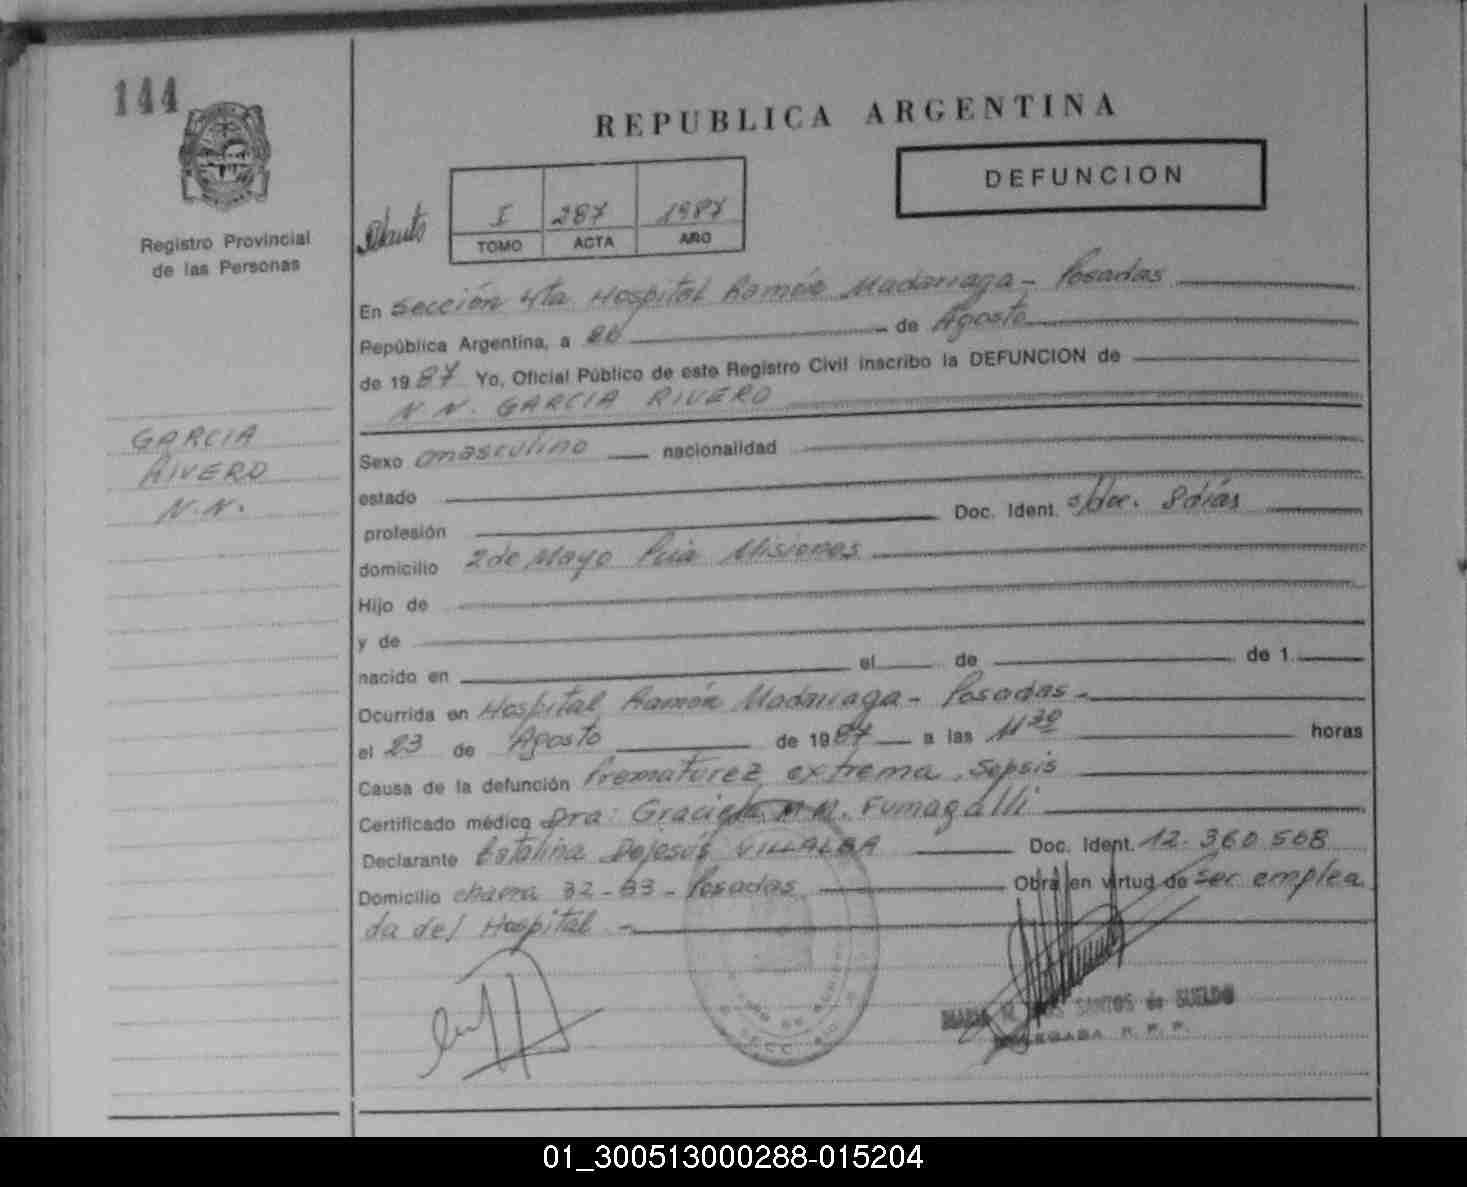 144
REPUBLICA ARGENTINA
DEFUNCION
Registro Provincial
de las Personas
I 287 1987
TOMO ACTA AÑO
En Sección 4ta Hospital Ramón Madariaga - Posadas
República Argentina, a 26 de Agosto
de 1987 Yo, Oficial Público de este Registro Civil inscribo la DEFUNCION de
N.N. GARCIA RIVERO
GARCIA
RIVERO
N.N.
Sexo masculino nacionalidad
estado
profesión Doc. Ident. s/doc. 8 días
domicilio 2 de Mayo Pcia Misiones
Hijo de
y de
nacido en el de de 1
Ocurrida en Hospital Ramón Madariaga - Posadas -
el 23 de Agosto de 1987 a las 11 30 horas
Causa de la defunción Prematurez extrema. Sepsis
Certificado médico Dra: Graciela M.M. Fumagalli
Declarante Estalina Dejesús VILLALBA Doc. Ident. 12.360.508
Domicilio chacra 32-33 - Posadas Obra en virtud de ser emplea
da del Hospital -
SANTOS de SUELDO
DELEGADA R. P. P.
01_300513000288-015204